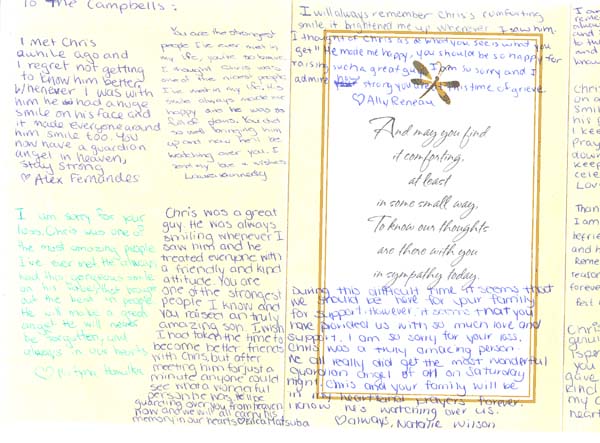 To The Campbells:
I Met Chris
awhile ago and
I regret not getting
to know him better.
Whenever I was with
him he had a huge
smile on his face and
it made everyone around
him smile too. You
now have a guardian
angel in heaven,
stay strong
♡ Alex Fernandes
You are the strongest
people I've ever met in
my life, you're so brave.
I thought Chris was
one of the nicest people
I've met in my life. His
smile always made me
happy and he was so
full of jokes. You did
so well bringing him
up and now he'll be
watching over you. I
send my love & wishes
Laura Kennedy
I will always remember Chris's comforting
smile it brightened me up whenever I saw him.
I thought of Chris as a "what you see is what you
get" He made me happy, you should be so happy for
raising such a great guy. I am so sorry and I
admire how strong you are at this time of grieve.
♡ Ally Reneau
And may you find
it comforting,
at least
in some small way,
To know our thoughts
are there with you
in sympathy today.
I am sorry for your
loss. Chris was one of
the most amazing people
I've ever met. He always
had this gorgeous smile
on his face that brought
out the best in people.
He will make a great
angel. He will never
be forgotten, and
always in our hearts
Chris was a great
guy. He was always
smiling whenever I
saw him and he
treated everyone with
a friendly and kind
attitude. You are
one of the strongest
people I know and
you raised an truly
amazing son. I wish
I had taken the time to
become better friends
with Chris, but after
meeting him for just a
minute anyone could
see what a wonderful
person he was. He'll be
guarding over you from heaven
now and we will all carry his
memory in our hearts ♡ Erica Matsuba
During this difficult time it seems that
we should be here for your family
for support. However, it seems that you
have provided us with so much love and
support. I am so sorry for your loss.
Chris was a truly amazing person.
We all really did get the most wonderful
guardian angel of all on Saturday
night. Chris and your family will be
in my heart and prayers forever.
I know he's watching over us.
♡ always, Natalie Wilson